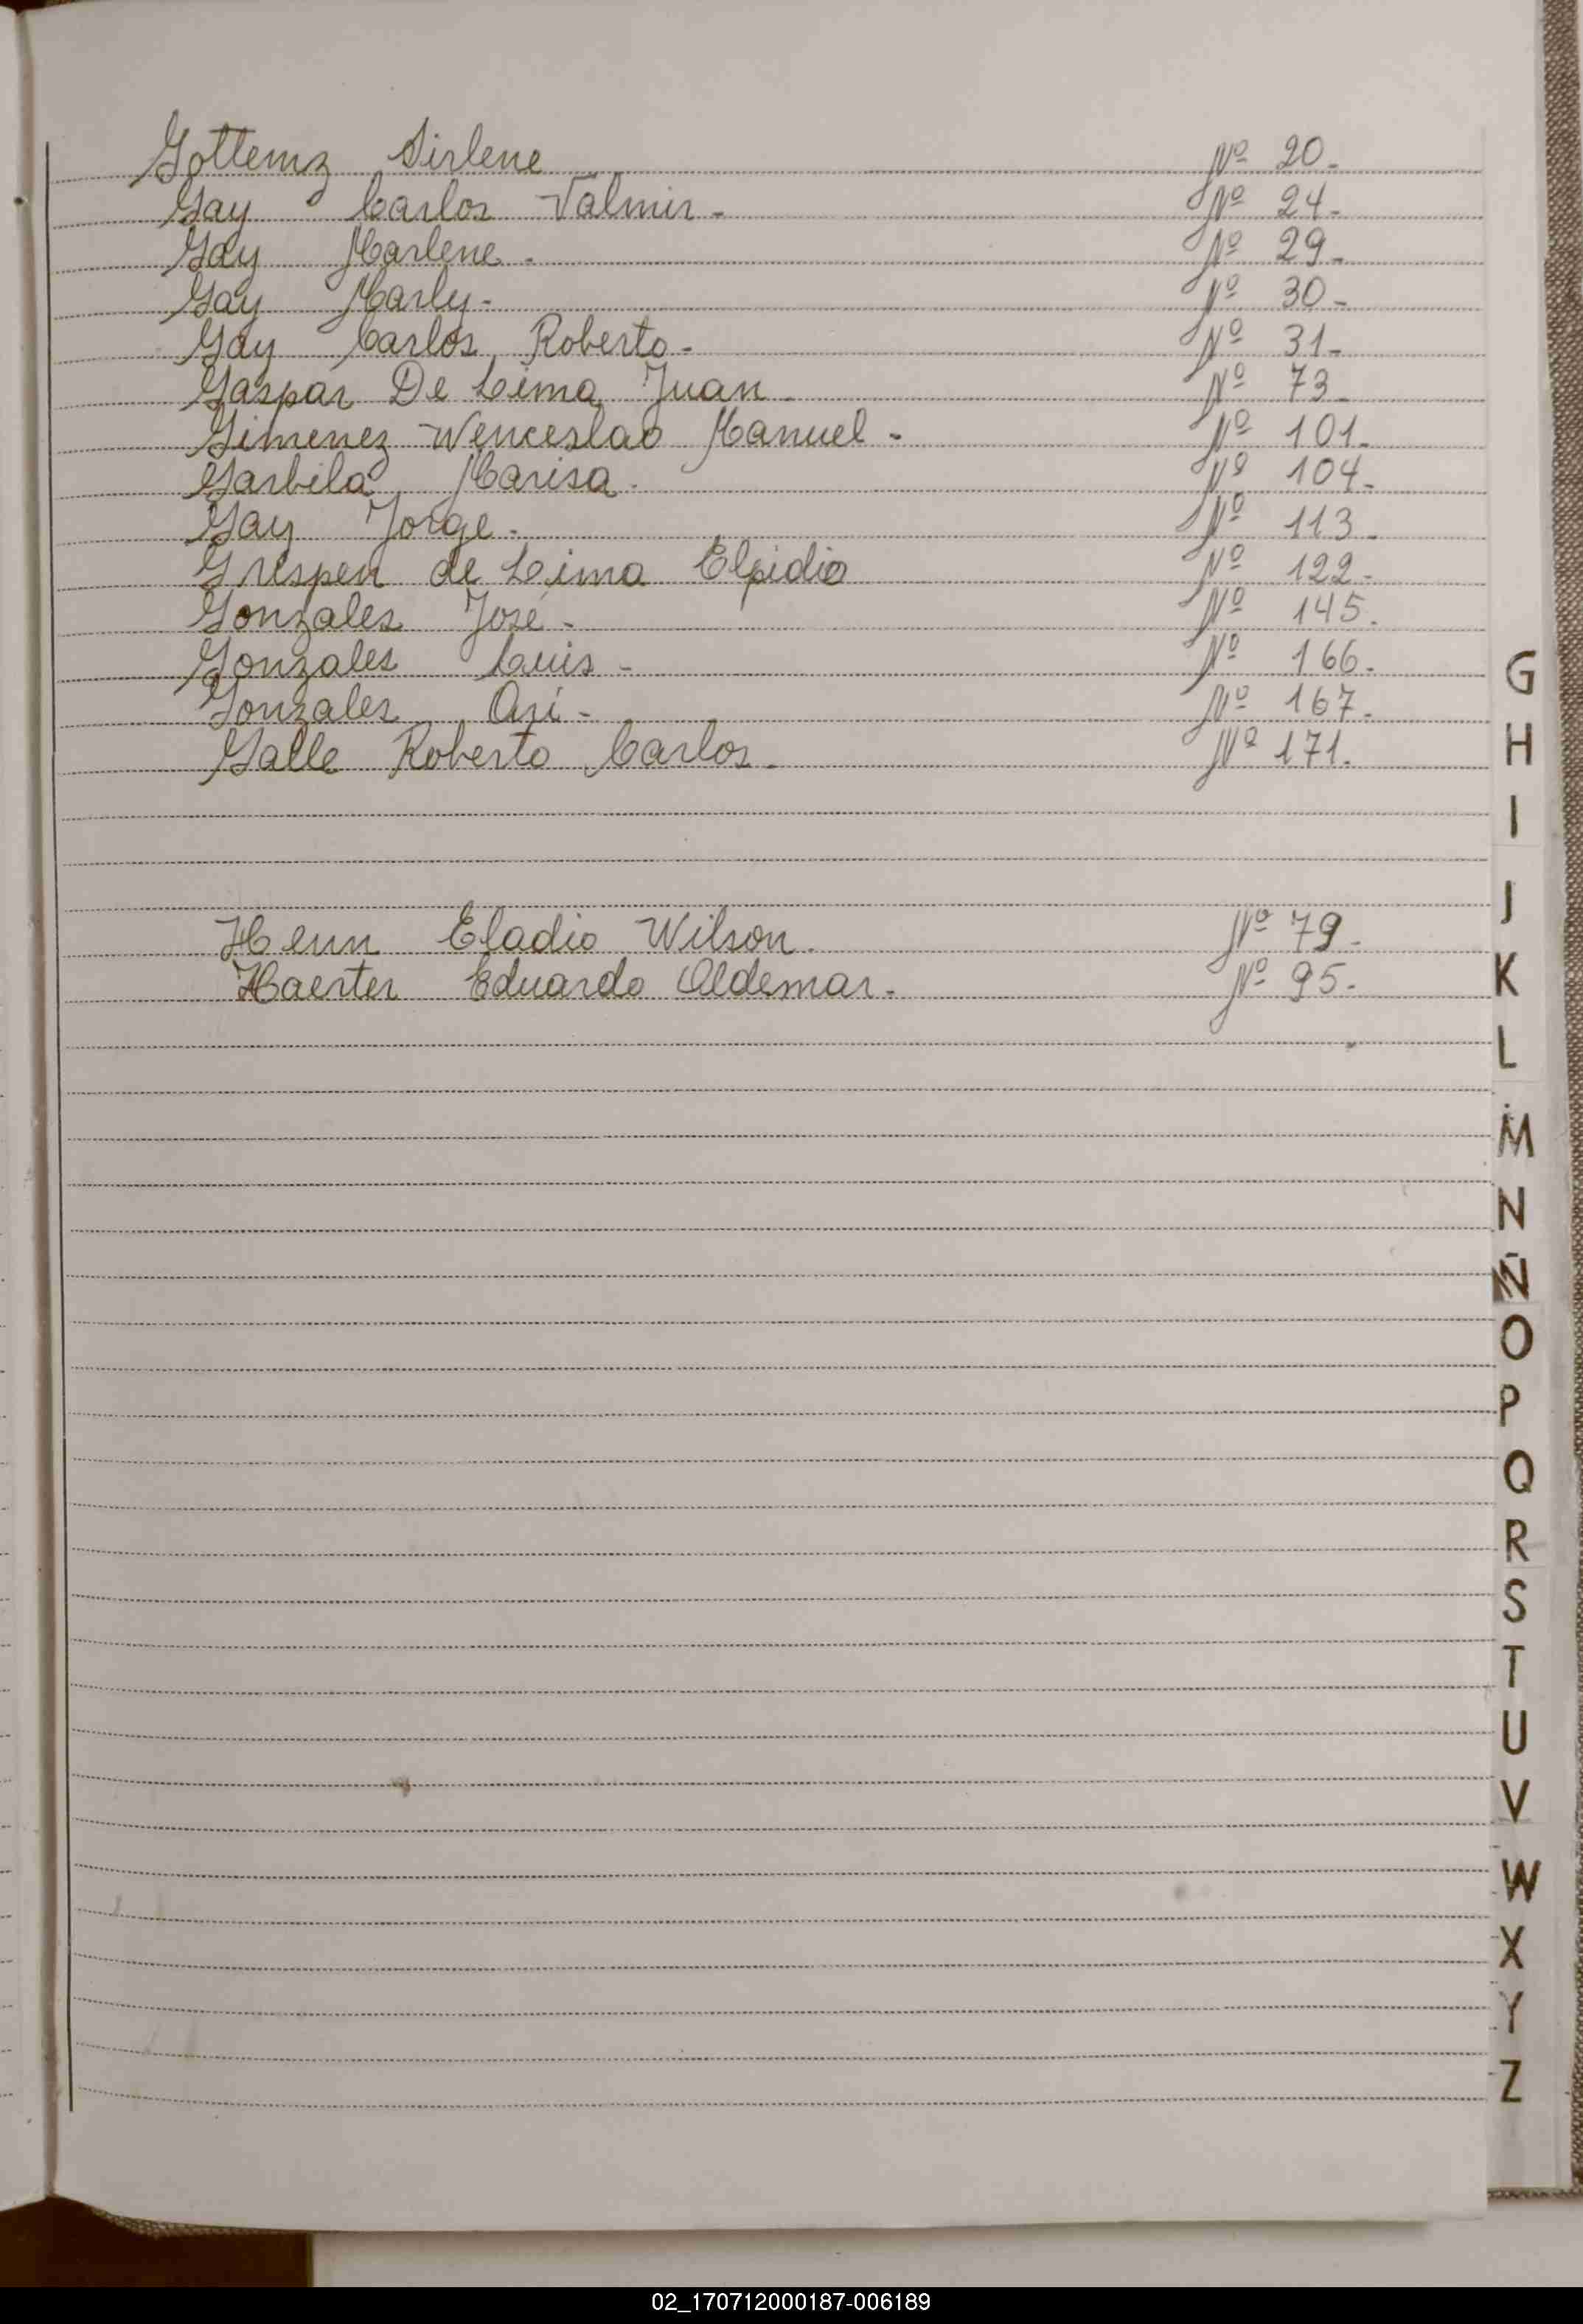 Gottemz Sirlene Nº 20.
Gay Carlos Valmir. Nº 24.
Gay Marlene. Nº 29.
Gay Marly. Nº 30.
Gay Carlos Roberto. Nº 31.
Gaspar De Lima Juan. Nº 73.
Gimenez Wenceslao Manuel. Nº 101.
Garbila Marisa. Nº 104.
Gay Jorge. Nº 113.
Grespen de Lima Elpidio Nº 122.
Gonzales José. Nº 145.
Gonzales Luis. Nº 166.
Gonzales Nº 167.
Galle Roberto Carlos. Nº 171.
Henn Eladio Wilson. Nº 79.
Haerter Eduardo Aldemar. Nº 95.
G
H
I
J
K
L
M
N
Ñ
O
P
Q
R
S
T
U
V
W
X
Y
Z
02_170712000187-006189